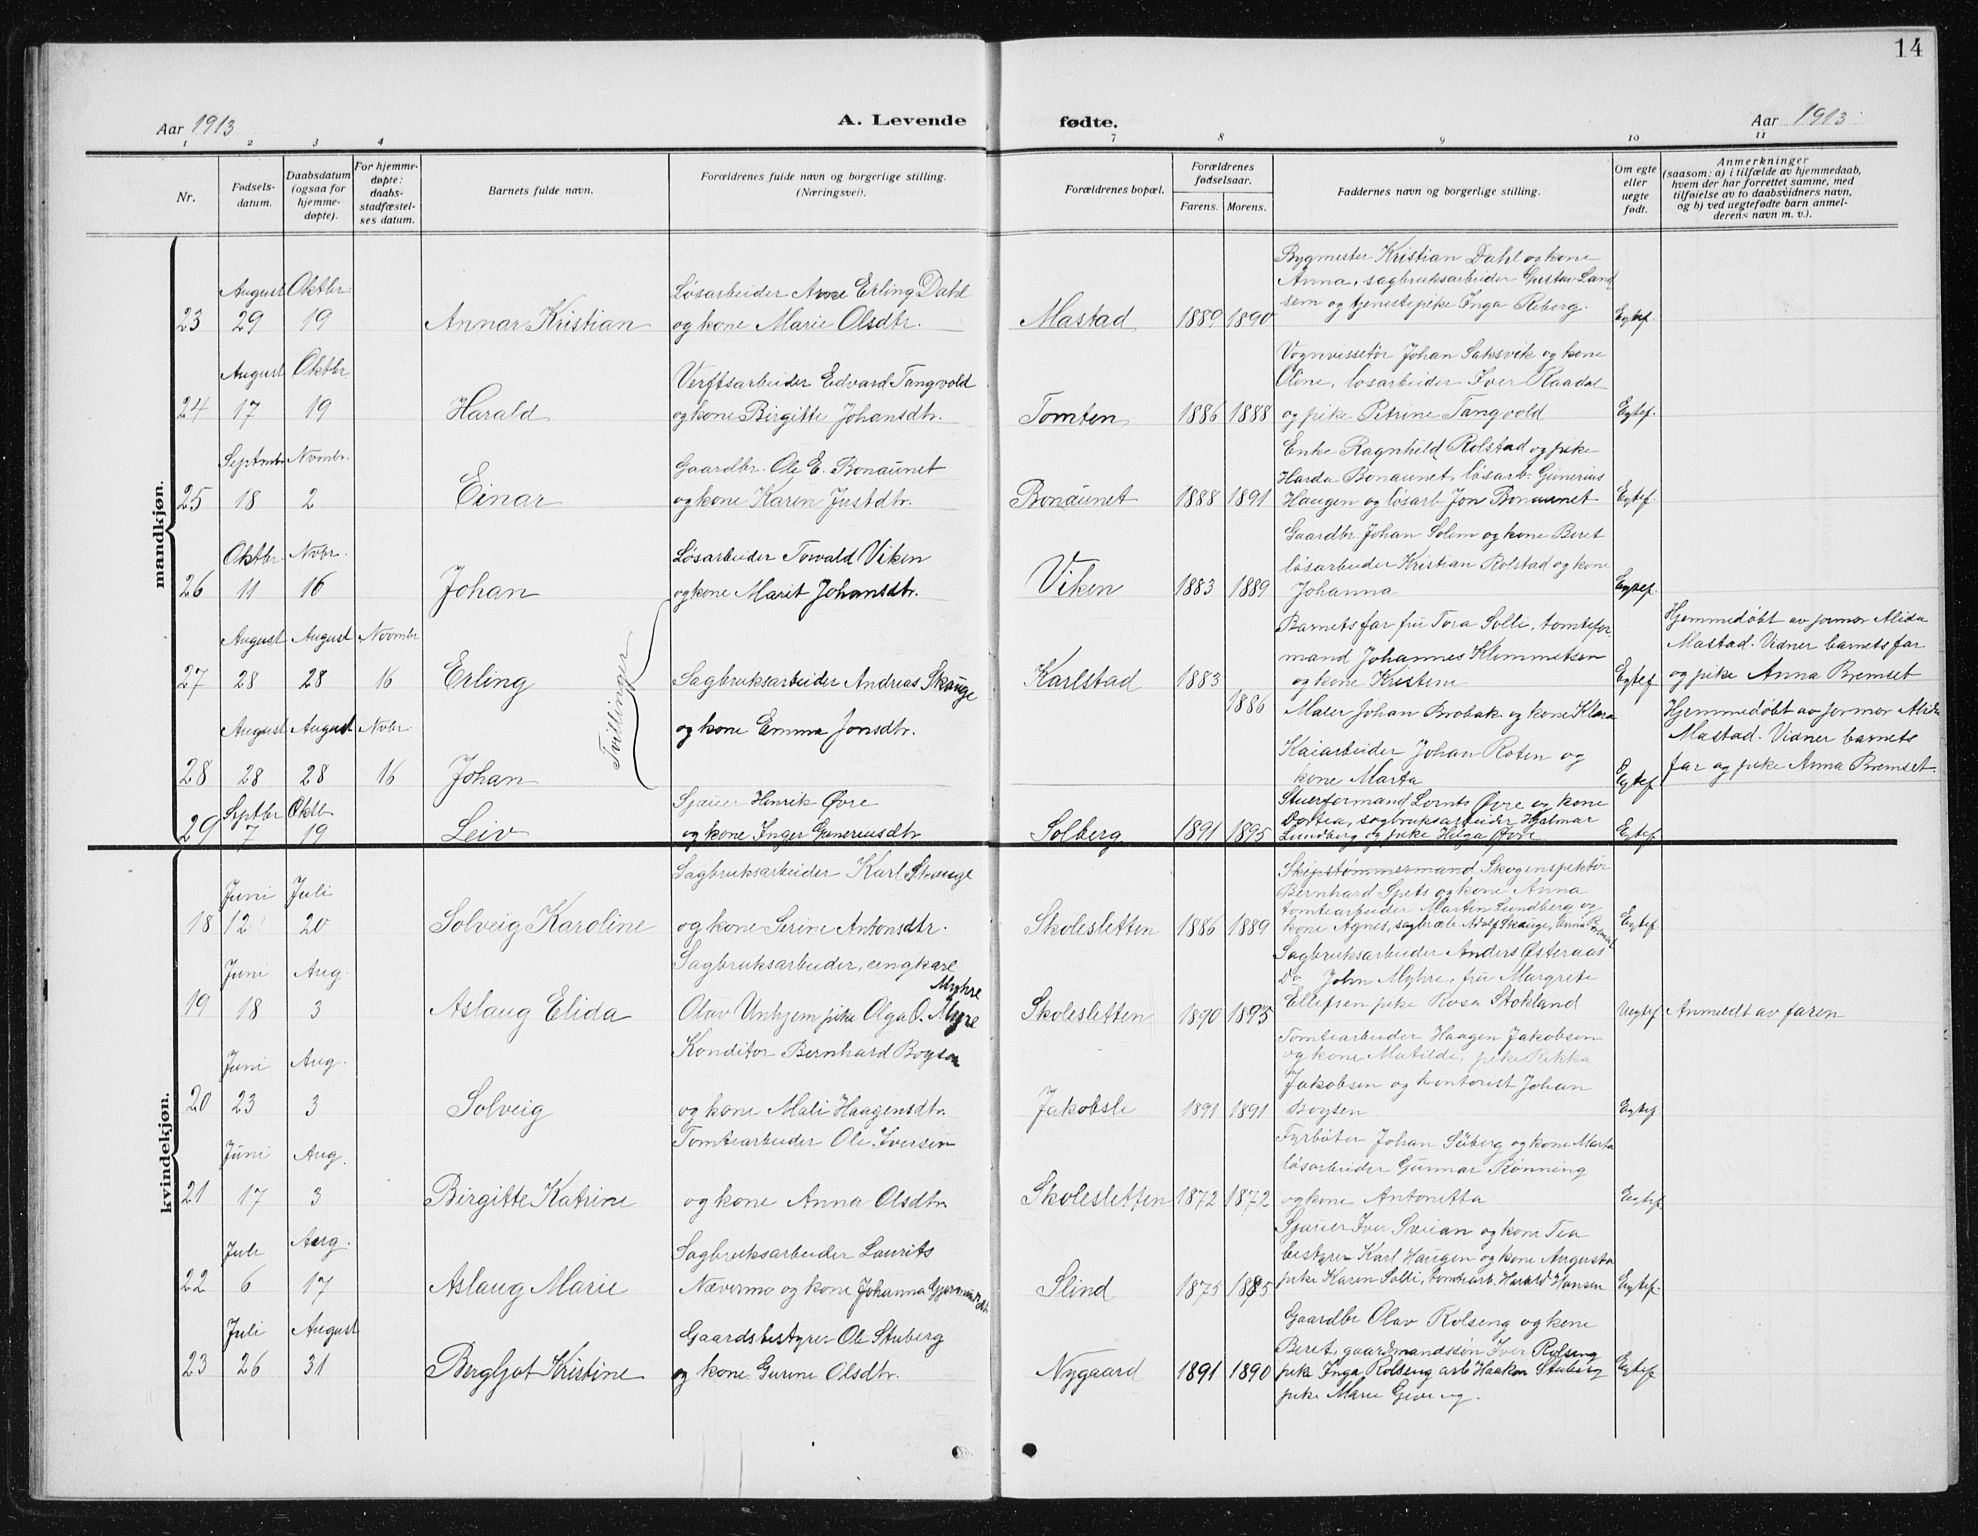 14
Aar 1913 A. Levende fødte. Aar 1913
1 2 3 4 7 8 9 10 11
Nr.
Fødsels-
datum.
Daabsdatum
(ogsaa for
hjemme-
døpte).
For hjemme-
døpte:
daabs-
stadfæstel-
ses datum.
Barnets fulde navn.
Forældrenes fulde navn og borgerlige stilling.
(Næringsvei).
Forældrenes bopæl.
Forældrenes
fødselsaar.
Farens. Morens.
Faddernes navn og borgerlige stilling.
Om egte
eller
uegte
født.
Anmerkninger
(saasom: a) i tilfælde av hjemmedaab,
hvem der har forrettet samme, med
tilføielse av to daabsvidners navn,
og b) ved uegtefødte barn anmel-
derens navn m. v.).
mandkjøn.
August Oktbr. Løsarbeider Arne Erling Dahl
23 29 19 Annar Kristian og kone Marie Olsdtr. Mastad 1889 1890 Egtef.
Bygmester Kristian Dahl og kone
Anna, sagbruksarbeider Gustav Land
sem og tjenestepike Inga Reberg.
August Oktbr. Verftsarbeider Edvard Tangvold
24 17 19 Harald og kone Birgitte Johansdtr. Tomten 1886 1888 Egtef.
Vognvissetør Johan Saksvik og kone
Oline, løsarbeider Iver Raadal
og pike Petrine Tangvold
Septmbr. Novmbr. Gaardbr. Ole E. Bonaunet
25 18 2 Einar og kone Karen Justdtr. Bonaunet 1888 1891 Egtef.
Enke Ragnhild Rolstad og pike
Harda Bonaunet, løsarb. Gunerius
Haugen og løsarb Jon Bonaunet
Oktbr. Novbr. Løsarbeider Torvald Viken
26 11 16 Johan og kone Marit Johansdtr. Viken 1883 1889 Egtef.
Gaardbr Johan Solem og kone Beret
løsarbeider Kristian Rolstad og kone
Johanna
August August Novmbr
27 28 28 16 Erling Sagbruksarbeider Andreas Skauge Karlstad 1883 Egtef
Barnets far fru Tora Solli, tomtefor
mand Johannes Klemmetsen
og kone Kristine
Hjemmedøbt av jormor Alida
Mastad. Vidner barnets far
og pike Anna Bremset
Tvillinger
August August Novbr. og kone Emma Jonsdtr. 1886
28 28 28 16 Johan Egtef
Maler Johan Brobak og kone Klara
Kaiarbeider Johan Roten og
kone Marta
Hjemmedøbt av jormor Alida
Mastad. Vidner barnets
far og pike Anna Bremset.
Septbr Oktb. Sjauer Henrik Øvre
29 7 19 Leiv og kone Inger Guneriusdtr Solberg 1891 1895 Egtef
Stuerformand Lornts Øvre og kone
Dortea, sagbruksarbeider Hjalmar
Lundberg og pike Helga Øvre
kvindekjøn.
Juni Juli Sagbruksarbeider Karl Skauge
18 12 20 Solveig Karoline og kone Serine Antonsdtr. Skolesletten 1886 1889 Egtef.
Skipstømmermand Skogenspektør
Bernhard Spets og kone Anna
tomtearbeider Marten Lundberg og
kone Agnes, Adolf Skauge,
Juni Aug. Sagbruksarbeider, ungkare
Myhre
19 18 3 Aslaug Elida Olav Unhjem pike Olga O. Myre Skolesletten 1890 1895 Uegtef Anmeldt av faren
Sagbruksarbeider Anders Østeraas
Do John Myhre, fru Margrete
Ellefsen pike Rosa Stokland
Juni Aug. Konditor Bernhard Boysen
20 23 3 Solveig og kone Mali Haagensdtr. Jakobsle 1891 1891 Egtef
Tomtearbeider Haagen Jakobsen
og kone Matilde, pike Rikka
Jakobsen og kontorist Johan
Boysen
Juni Aug. Tomtearbeider Ole Iversen
21 17 3 Birgitte Katrine og kone Anna Olsdtr Skolesletten 1872 1872 Egtef
Fyrbøter Johan Søberg og kone Marta
løsarbeider Gunnar Rønning
og kone Antonetta
Juli Aug. Sagbruksarbeider Laurits
22 6 17 Aslaug Marie Nævermo og kone Johanna Slind 1875 1885 Egtef.
Sjauer Iver Sveian og kone Tea
bestyrer Karl Haugen og kone Augusta
pike Karen Solli, tomtearb. Harald Hansen
Juli August Gaardsbestyrer Ole Stuberg
23 26 31 Bergljot Kristine og kone Gurine Olsdtr. Nygaard 1891 1890 Egtef
Gaardbr Olav Rolseng og kone
Beret, gaardmandssøn Iver Rolseng
pike Inga Rolseng arb Haakon Stuberg
pike Marie